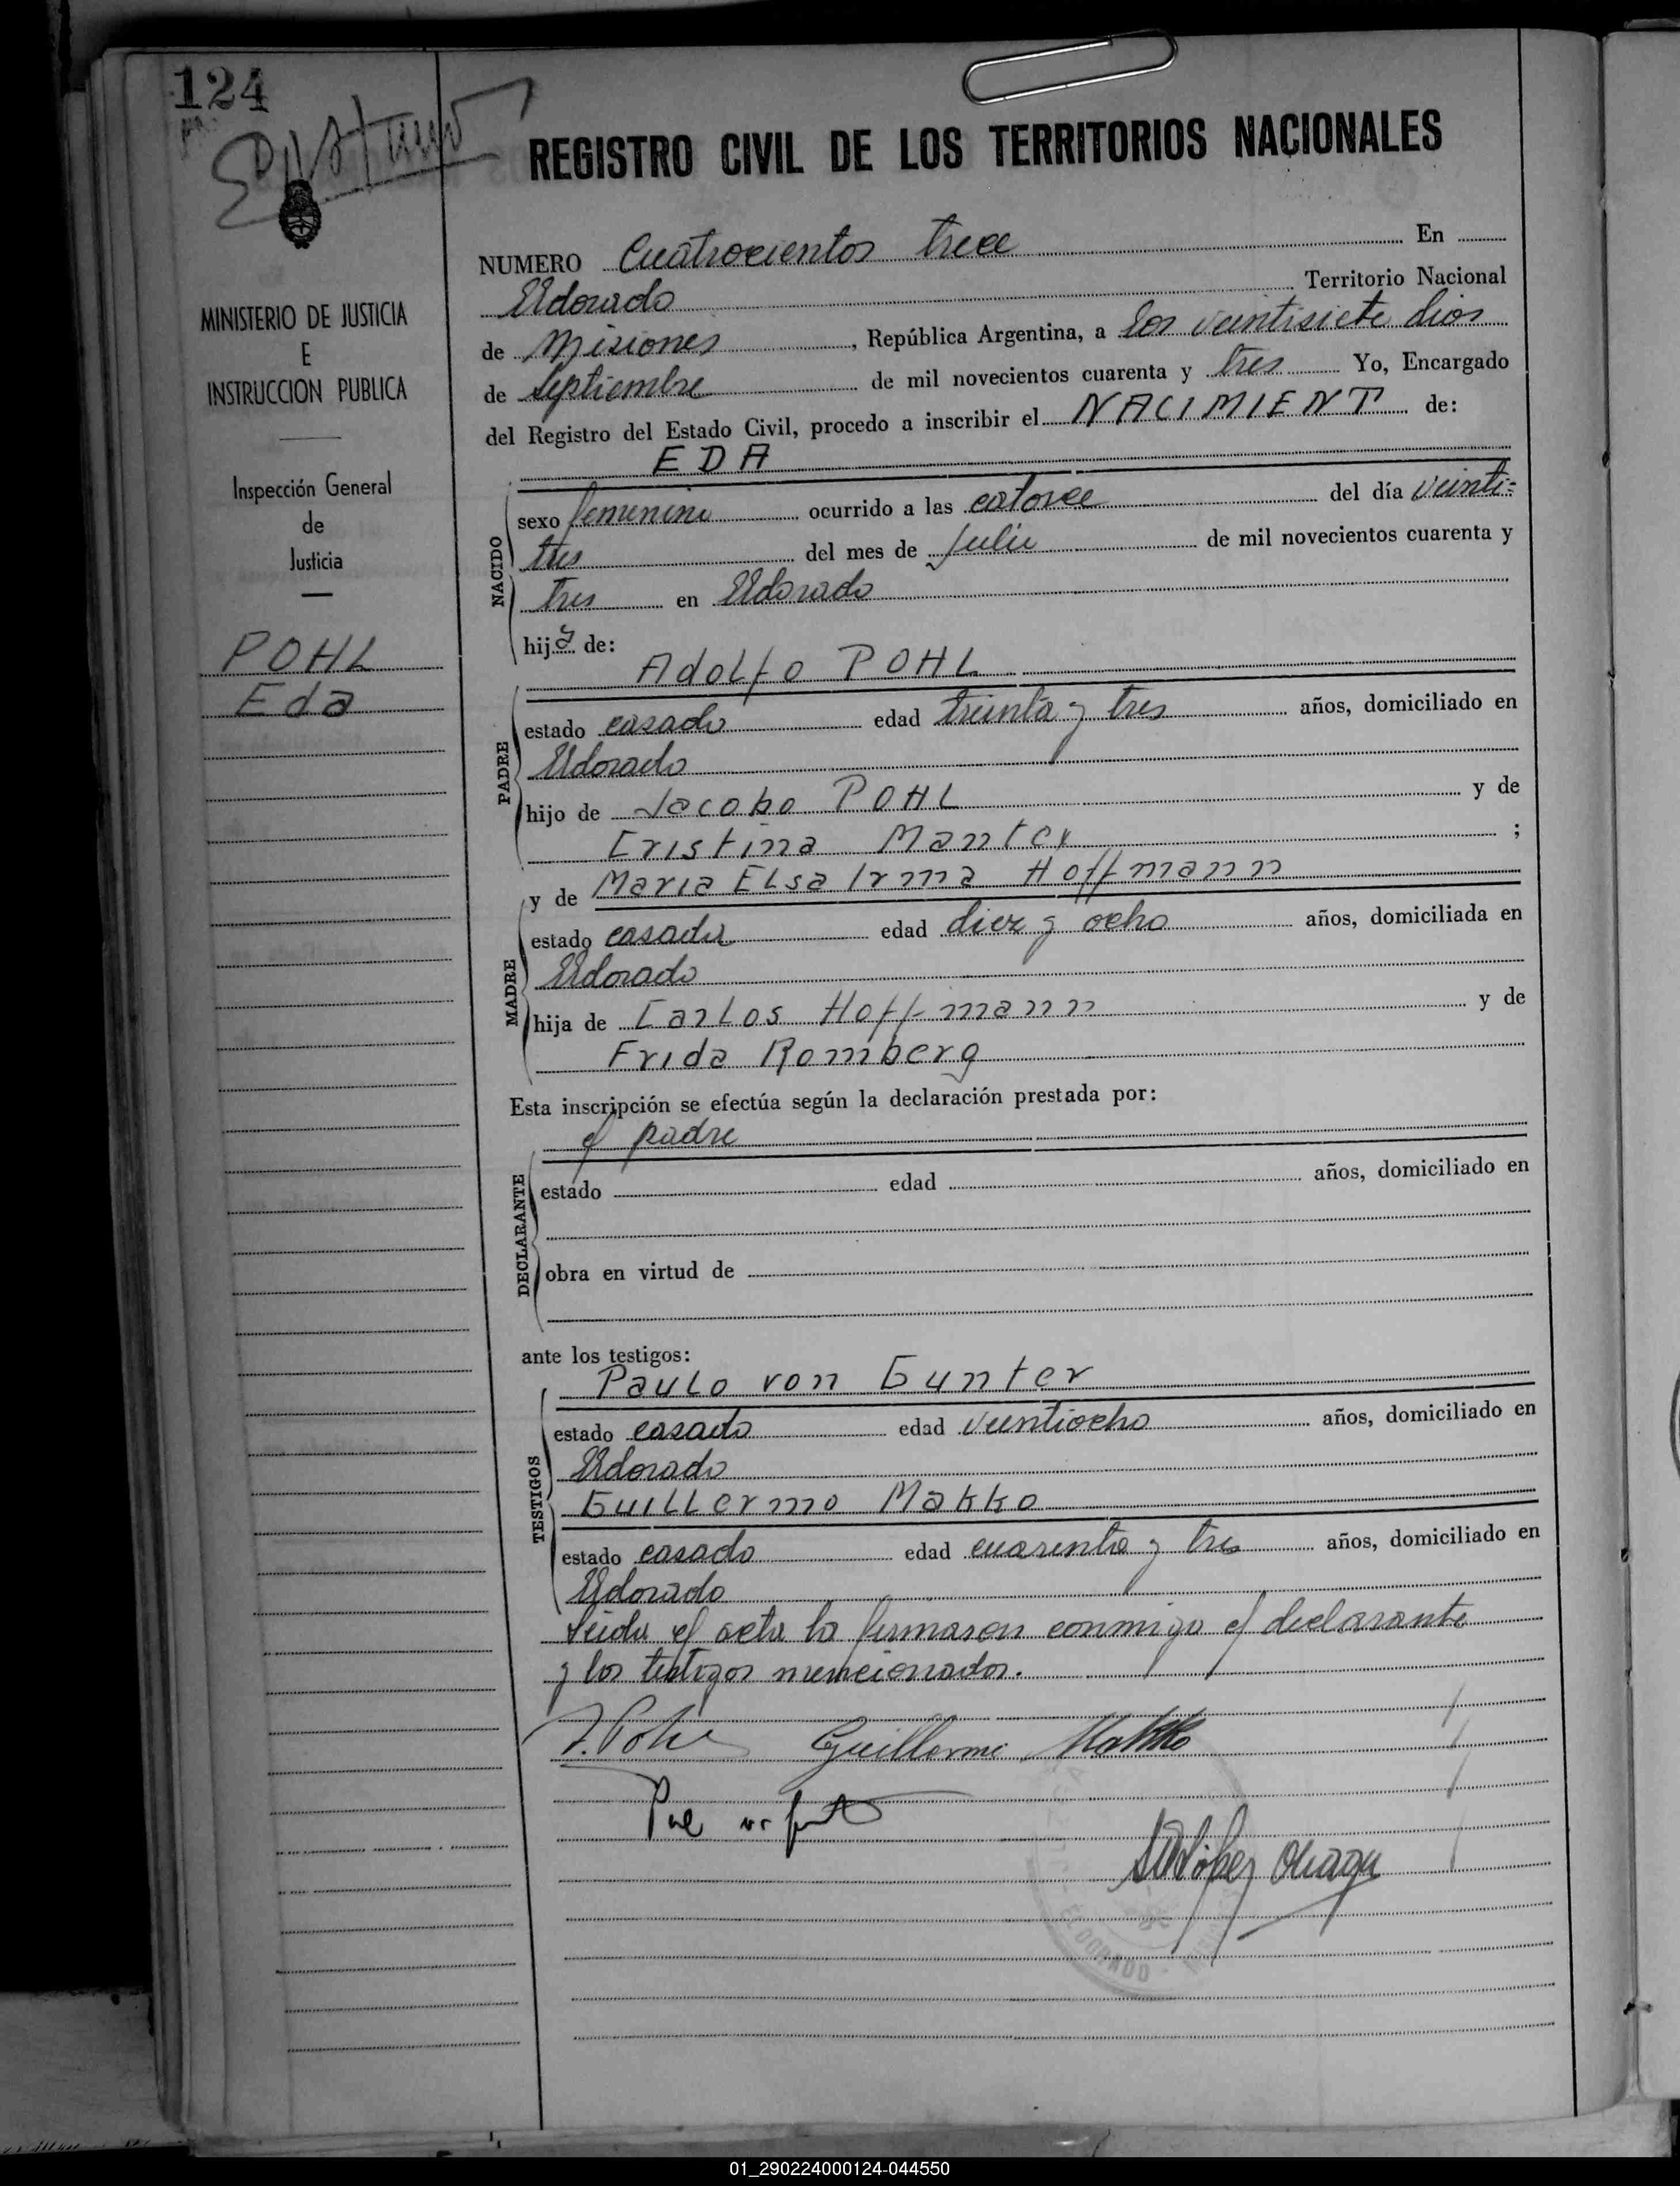 124
REGISTRO CIVIL DE LOS TERRITORIOS NACIONALES
MINISTERIO DE JUSTICIA
E
INSTRUCCION PUBLICA
Inspección General
de
Justicia
POHL
Eda
NUMERO Cuatrocientos trece En
Eldorado Territorio Nacional
de Misiones, República Argentina, a los veintisiete dias
de Septiembre de mil novecientos cuarenta y tres Yo, Encargado
del Registro del Estado Civil, procedo a inscribir el NACIMIENT de:
EDA
NACIDO
sexo femenino ocurrido a las catorce del día veinti=
tres del mes de Julio de mil novecientos cuarenta y
tres en Eldorado
hija de:
Adolfo POHL
PADRE
estado casado edad treinta y tres años, domiciliado en
Eldorado
hijo de Jacobo POHL y de
Cristina Manter ;
y de Maria Elsa Irma Hoffmann
MADRE
estado casada edad diez y ocho años, domiciliada en
Eldorado
hija de Carlos Hoffmann y de
Frida Romberg
Esta inscripción se efectúa según la declaración prestada por:
el padre
DECLARANTE
estado edad años, domiciliado en
obra en virtud de
ante los testigos:
Paulo von Gunter
TESTIGOS
estado casado edad veintiocho años, domiciliado en
Eldorado
Guillermo Makko
estado casado edad cuarenta y tres años, domiciliado en
Eldorado
Leida el acta la firmaron conmigo el declarante
y los testigos mencionados.
A. Pohl Guillermo Makko
López
ELDORADO
01_290224000124-044550